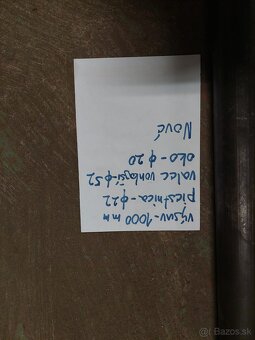 výsuv-1000 mm
piestnica-φ22
valec vonkajší-φ52
oko-φ20
Nové
Bazoš.sk